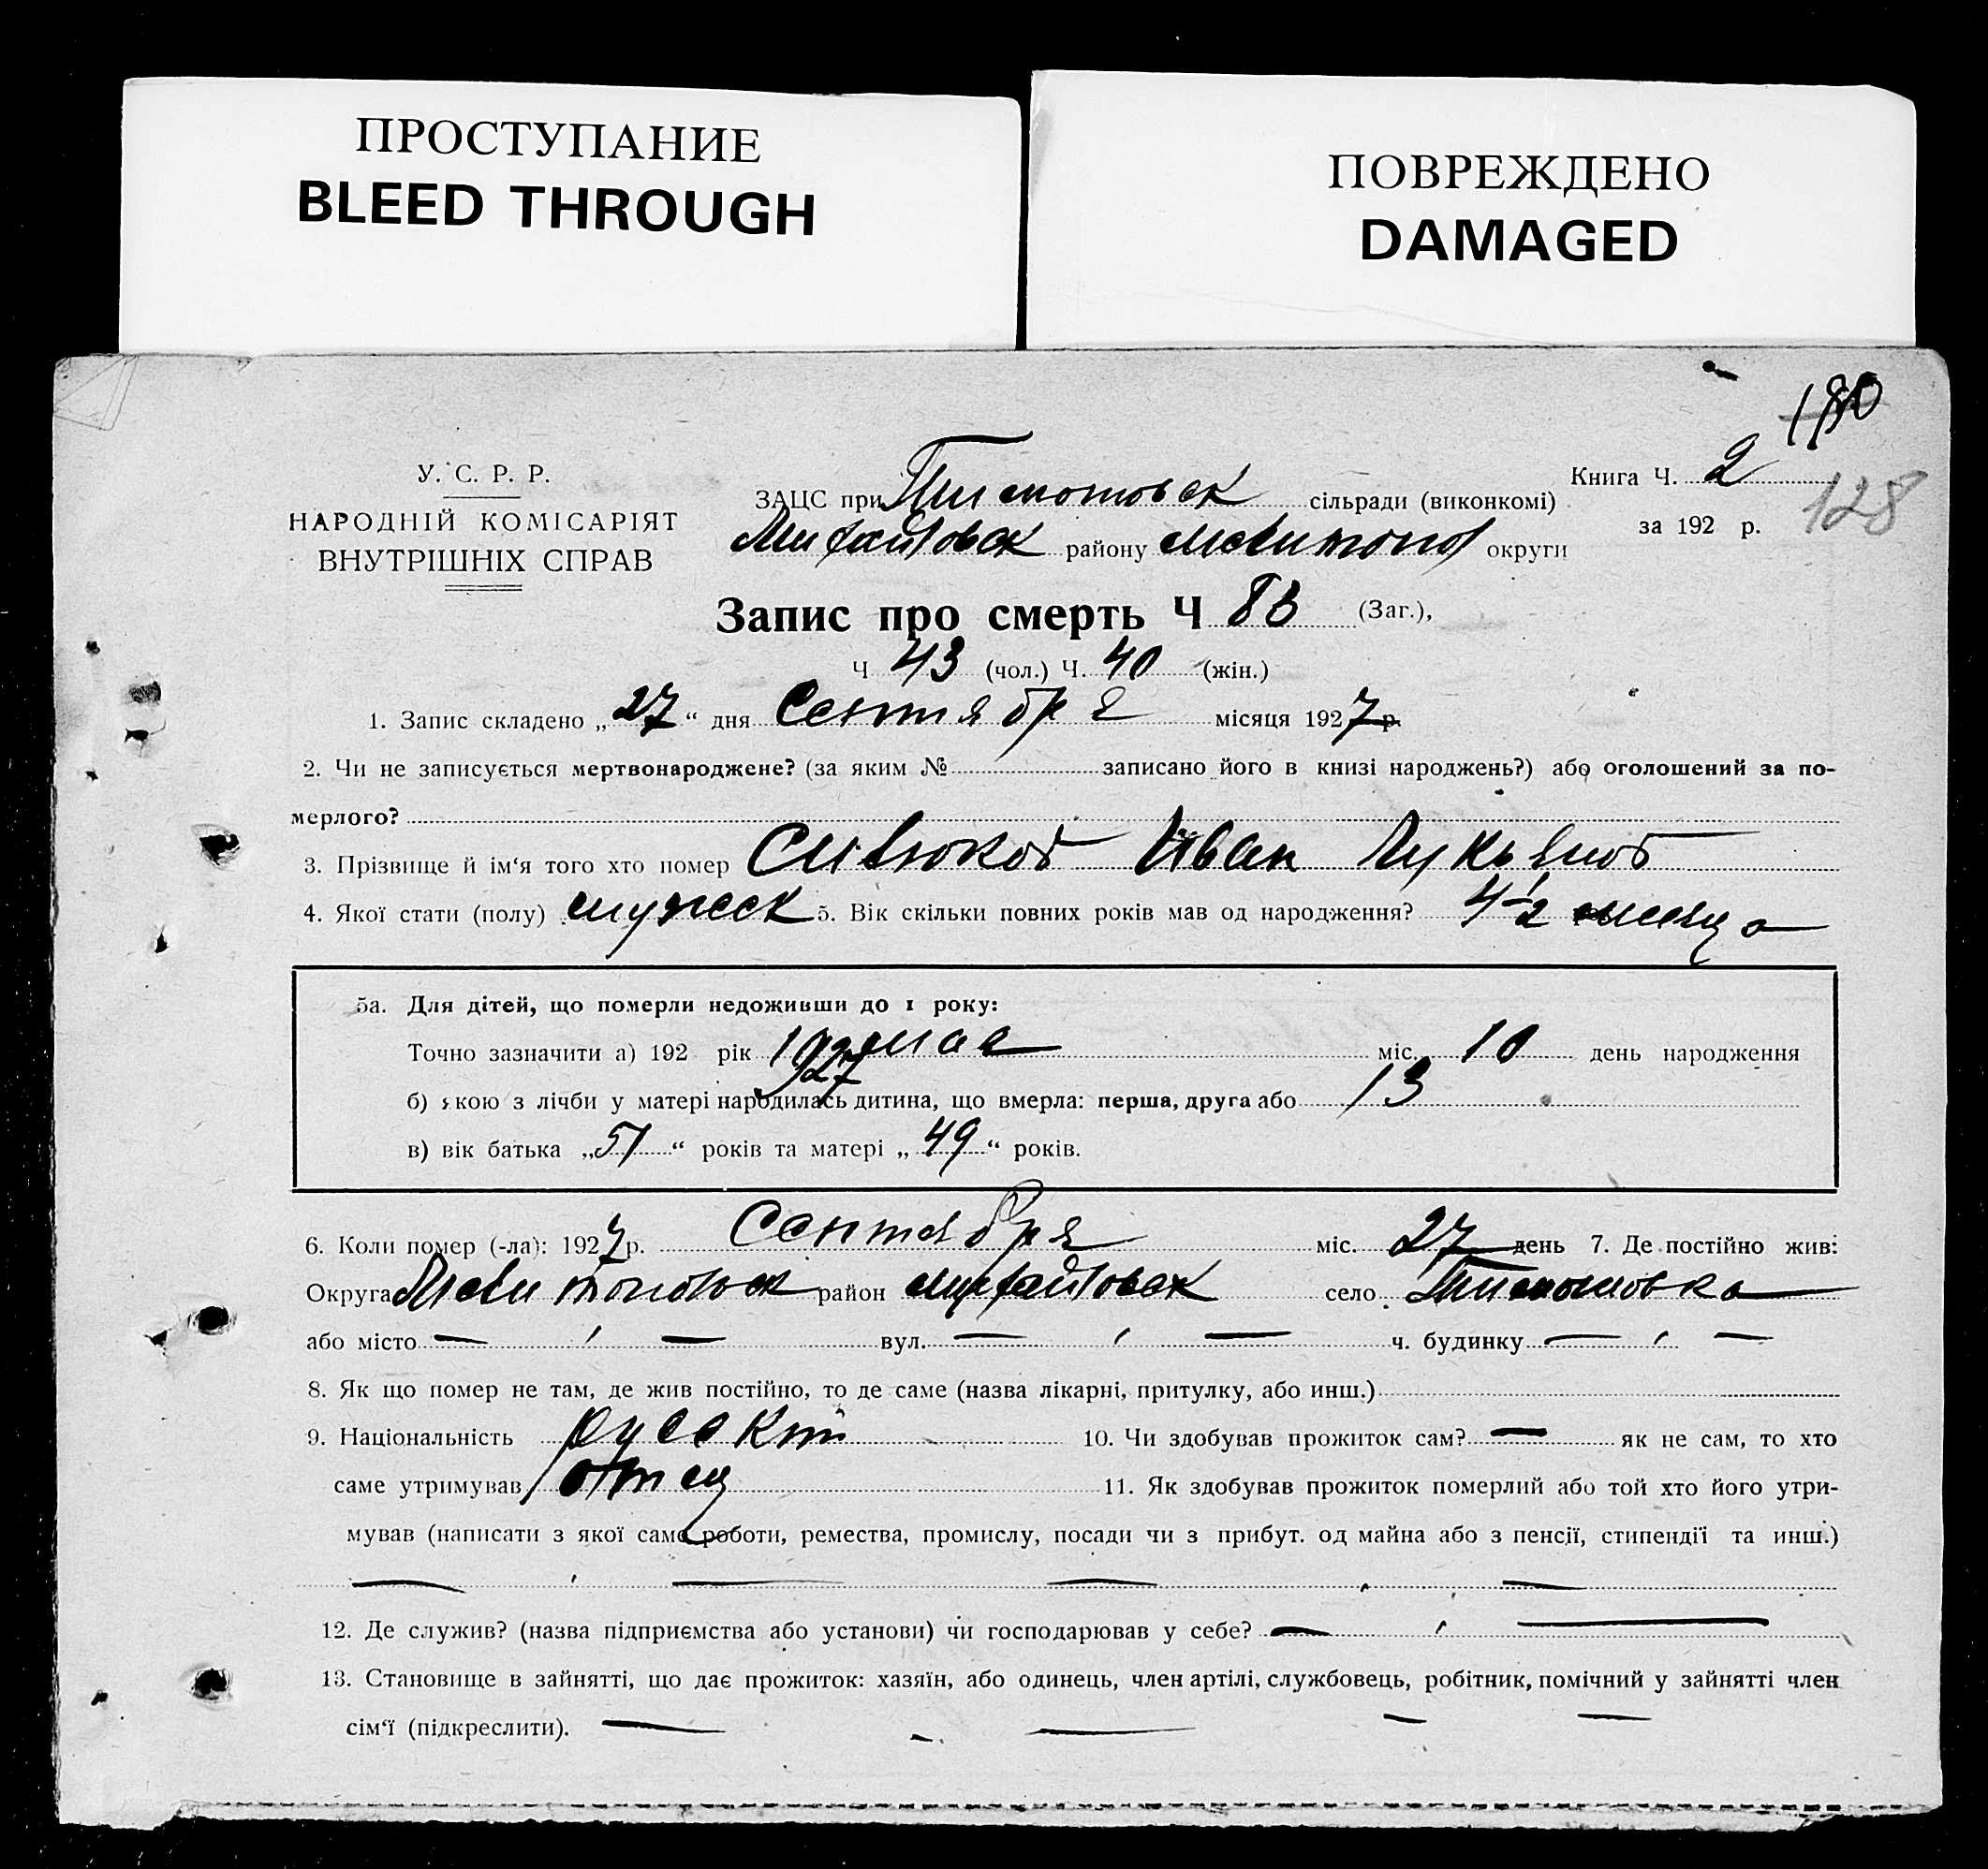 ПРОСТУПАНИЕ
BLEED THROUGH
ПОВРЕЖДЕНО
DAMAGED
У. С. Р. Р.
НАРОДНІЙ КОМІСАРІЯТ
ВНУТРІШНІХ СПРАВ
128
Книга Ч. 2
за 192 р.
ЗАЦС при Тимошовск сільради (виконкомі)
Михайловск району Мелитопол округи
Запис про смерть Ч 83 (Заг.),
Ч 43 (чол.) Ч. 40 (жін.)
1. Запис складено „27“ дня Сентября місяця 1927 р.
2. Чи не записується мертвонароджене? (за яким № записано його в книзі народжень?) або оголошений за по-
мерлого?
3. Прізвище й ім‘я того хто помер Иван Лукьянов
4. Якої стати (полу) мужеск 5. Вік скільки повних років мав од народження? 4½ месяца
5а. Для дітей, що померли недоживши до 1 року:
Точно зазначити а) 192 рік 1927 мая міс. 10 день народження
б) якою з лічби у матері народилась дитина, що вмерла: перша, друга або 13
в) вік батька „51“ років та матері „49“ років.
6. Коли помер (-ла): 1927 р. Сентября міс. 27 день 7. Де постійно жив:
Округа Мелитопольск район Михайловск село Тимошовка
або місто — ‚ — вул. — ‚ — ч. будинку — ‚ —
8. Як що помер не там, де жив постійно, то де саме (назва лікарні, притулку, або инш.)
9. Національність русский 10. Чи здобував прожиток сам? — як не сам, то хто
саме утримував отец 11. Як здобував прожиток померлий або той хто його утри-
мував (написати з якої саме роботи, ремества, промислу, посади чи з прибут. од майна або з пенсії, стипендії та инш.)
12. Де служив? (назва підприємства або установи) чи господарював у себе? — ‚ —
13. Становище в зайнятті, що дає прожиток: хазяїн, або одинець, член артілі, службовець, робітник, помічний у зайнятті член
сім‘ї (підкреслити). — — — —